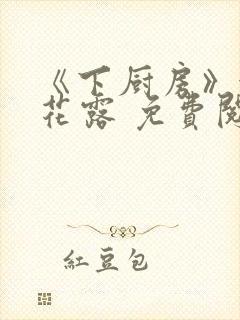 《下厨房》
花露 免費閱
紅豆包